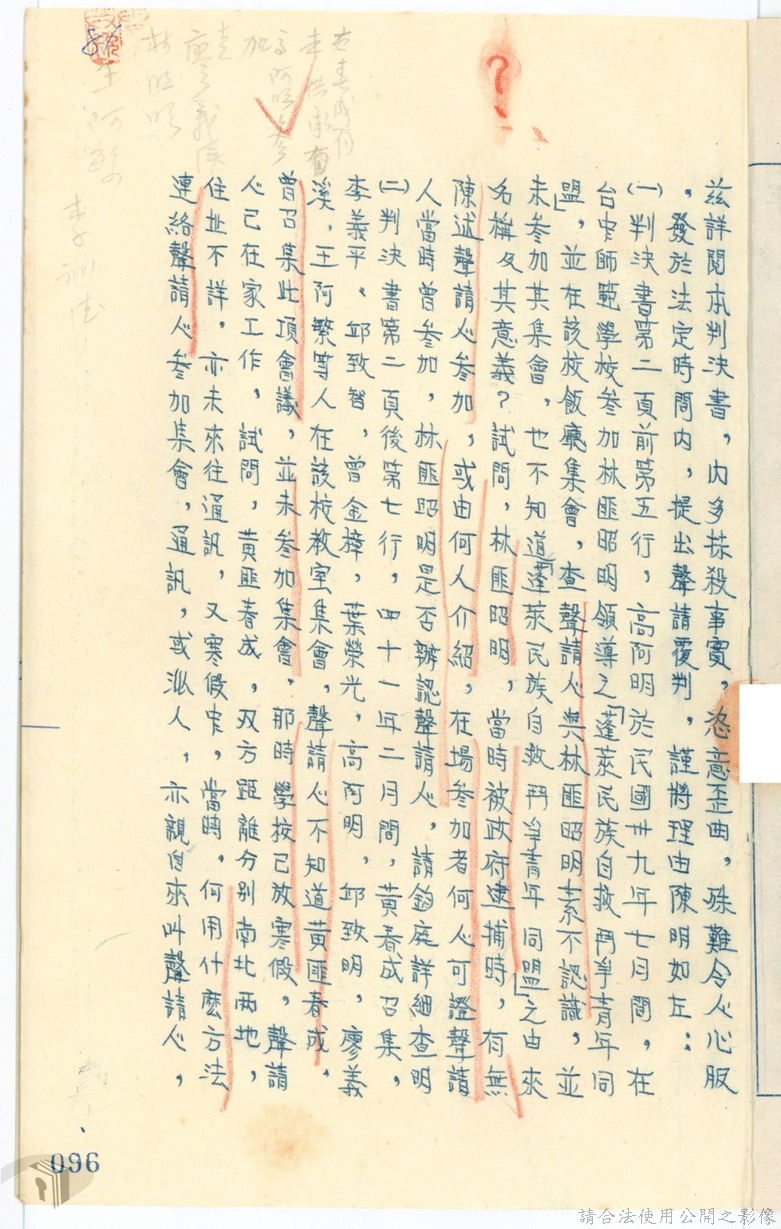 茲詳閱本判決書，內多抹殺事實，恣意歪曲，殊難令人心服
，發於法定時間內，提出聲請覆判，謹將理由陳明如左：
㈠判決書第二頁前第五行，高阿明於民國卅九年七月間，在
台中師範學校參加林匪昭明領導之「蓬萊民族自救鬥爭青年同
盟」，並在該校飯廳集會，查聲請人與林匪昭明素不認識，並
未參加其集會，也不知道「蓬萊民族自救鬥爭青年同盟」之由來
名稱及其意義？試問，林匪昭明，當時被政府逮捕時，有無
陳述聲請人參加，或由何人介紹，在場參加者何人可證聲請
人當時曾參加，林匪昭明是否辦認聲請人，請鈞庭詳細查明
㈡判決書第二頁後第七行，四十一年二月間，黃春成召集，
李義平、邱致智，曾金樟，葉榮光，高阿明，邱致明，廖義
溪，王阿繁等人在該校教室集會，聲請人不知道黃匪春成，
曾召集此項會議，並未參加集會，那時學校已放寒假，聲請
人已在家工作，試問，黃匪春成，双方距離分别南北兩地，
住址不詳，亦未來往通訊，又寒假中，當時，何用什麼方法
連絡聲請人參加集會，通訊，或派人，亦親自來叫聲請人，
?
廖義溪
林昭明
王阿繁
李訓德
096
請合法使用公開之影像